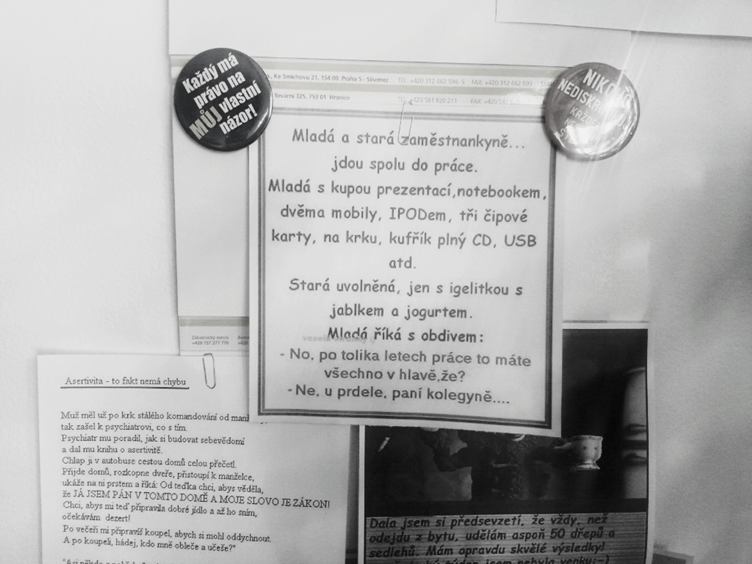 Každý má
právo na
MŮJ vlastní
názor!
Ke Smíchovu 21, 154 00, Praha 5 - Slivenec
325, 753 01 Hranice
NEDISKR
Mladá a stará zaměstnankyně...
jdou spolu do práce.
Mladá s kupou prezentací,notebookem,
dvěma mobily, IPODem, tři čipové
karty, na krku, kufřík plný CD, USB
atd.
Stará uvolněná, jen s igelitkou s
jablkem a jogurtem.
Mladá říká s obdivem:
- No, po tolika letech práce to máte
všechno v hlavě,že?
- Ne, u prdele, paní kolegyně....
Zákaznický servis
Asertivita - to fakt nemá chybu
Muž měl už po krk stálého komandování od man
tak zašel k psychiatrovi, co s tím.
Psychiatr mu poradil, jak si budovat sebevědomí
a dal mu knihu o asertivitě.
Chlap ji v autobuse cestou domů celou přečetl.
Přijde domů, rozkopne dveře, přistoupí k manželce,
ukáže na ni prstem a říká: Od teďka chci, abys věděla,
že JÁ JSEM PÁN V TOMTO DOMĚ A MOJE SLOVO JE ZÁKON!
Chci, abys mi teď připravila dobré jídlo a až ho sním,
očekávám dezert!
Po večeři mi připravíš koupel, abych si mohl oddychnout.
A po koupeli, hádej, kdo mně obleče a učeše?"
Dala jsem si předsevzetí, že vždy, než
odejdu z bytu, udělám aspoň 50 dřepů a
sedlehů. Mám opravdu skvělé výsledky!
týden jsem nebyla venku:-)